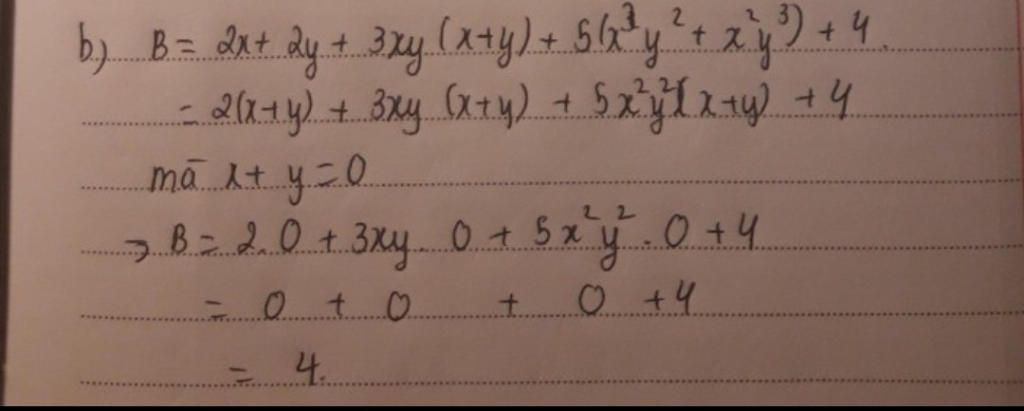 b) B = 2x + 2y + 3xy (x+y) + 5(x³y² + x²y³) + 4.
= 2(x+y) + 3xy (x+y) + 5x²y²(x+y) + 4
mà x + y = 0
→ B = 2.0 + 3xy. 0 + 5x²y². 0 + 4
= 0 + 0 + 0 + 4
= 4.